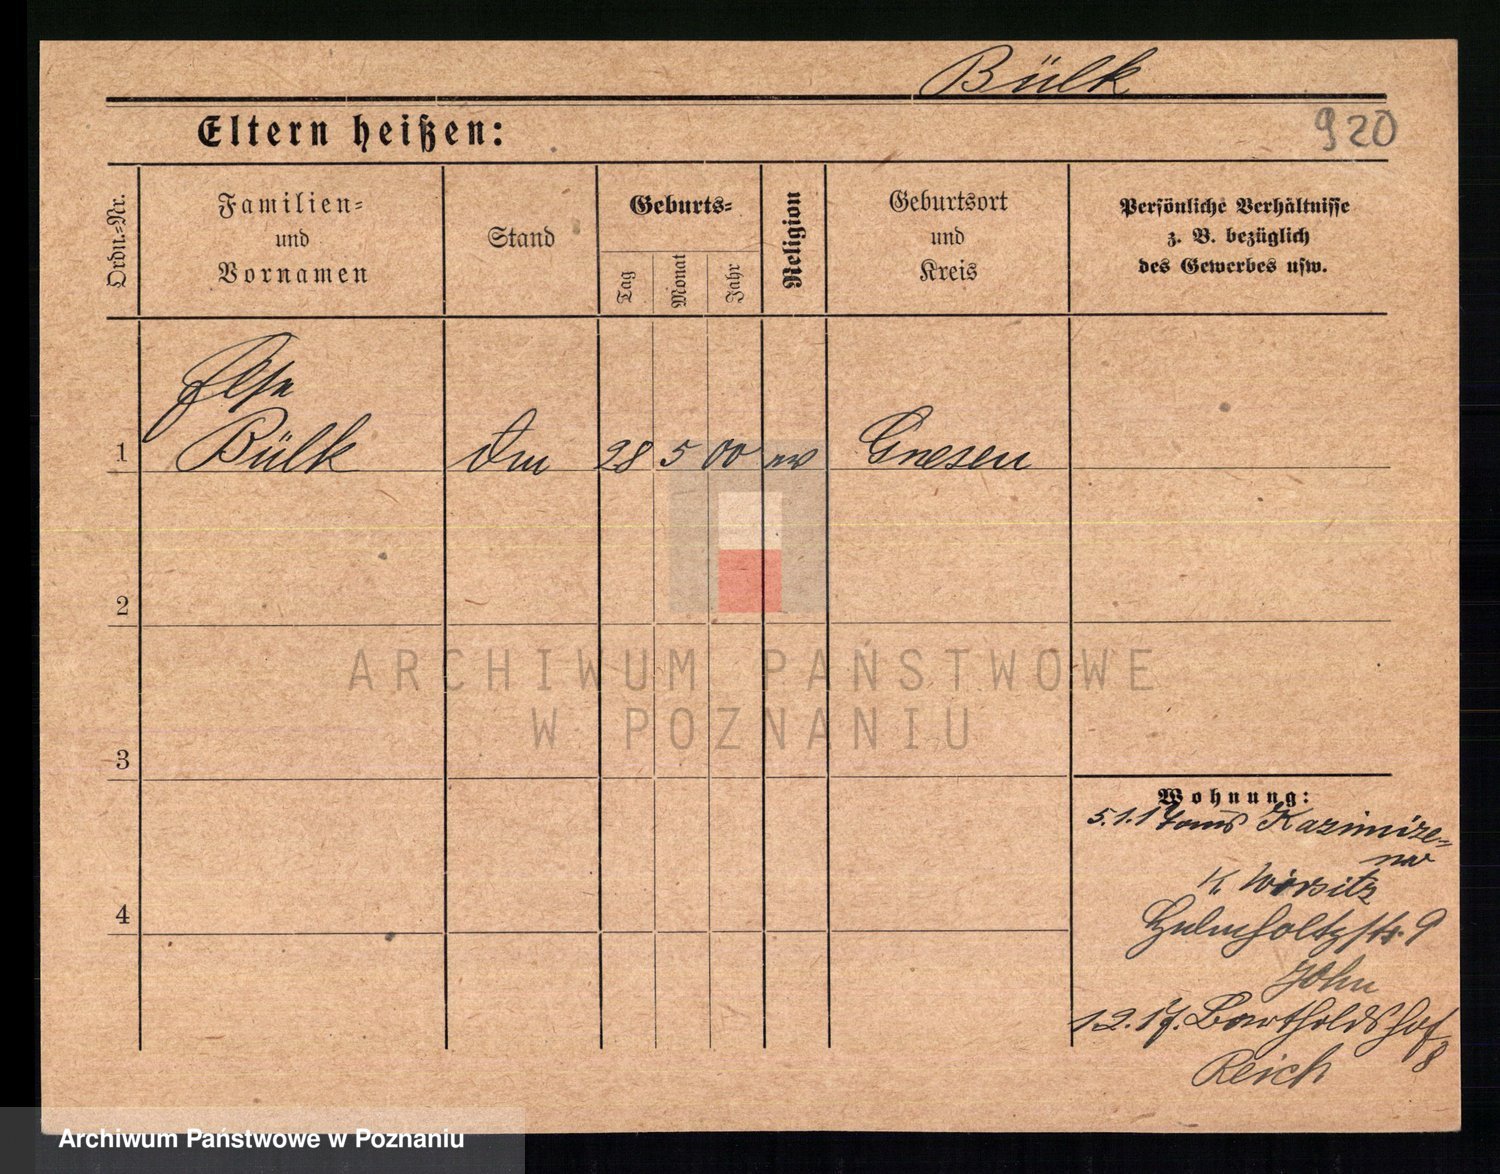 Bülk
Eltern heißen:
920
Ordn.-Nr.
Familien-
und
Vornamen
Stand
Geburts-
Tag
Monat
Jahr
Religion
Geburtsort
und
Kreis
Persönliche Verhältnisse
z. B. bezüglich
des Gewerbes usw.
Else
1 Bülk 28 5 00 ev Gnesen
2
3
4
ARCHIWUM PAŃSTWOWE
W POZNANIU
Wohnung:
5.1.17 aus Kazimize-
K. Worsitz
Helmholtzstr. 9
John
1.2.17. Bartholdshof
8
Reich
Archiwum Państwowe w Poznaniu